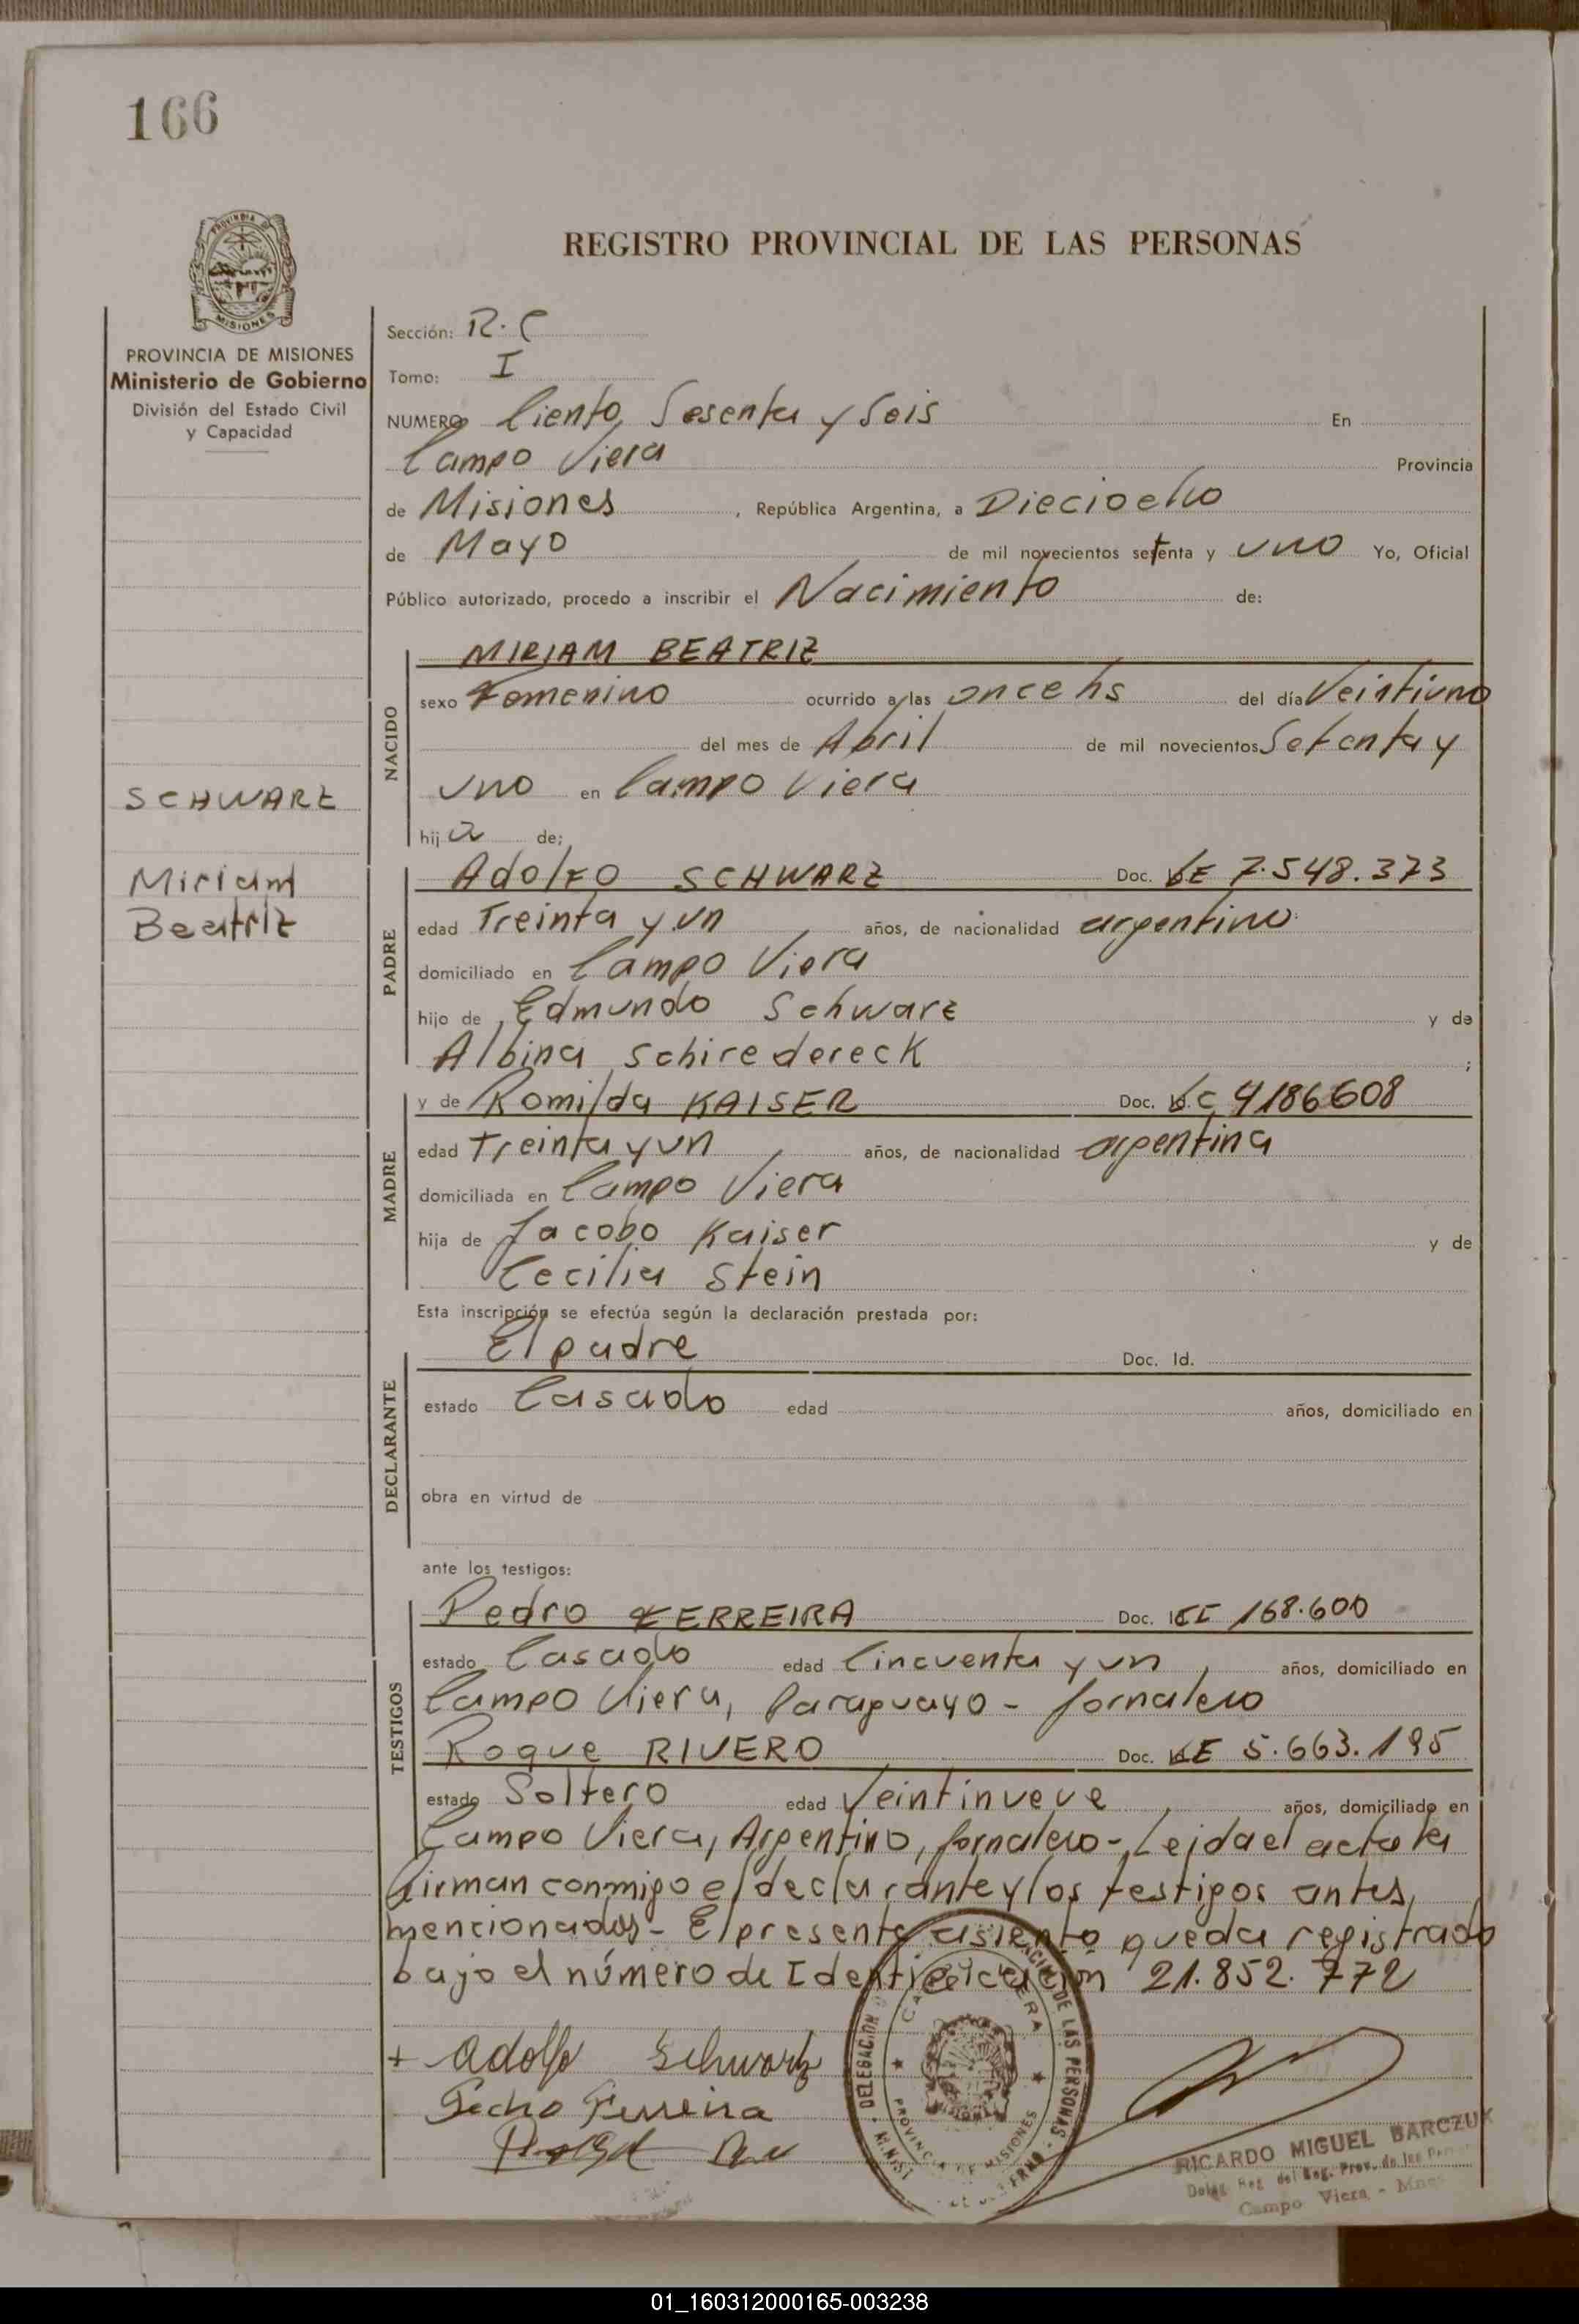 166
REGISTRO PROVINCIAL DE LAS PERSONAS
PROVINCIA DE MISIONES
Ministerio de Gobierno
División del Estado Civil
y Capacidad
SCHWARZ
Miriam
Beatriz
Sección: R. C
Tomo: I
NUMERO Ciento Sesenta y Seis En
Campo Viera Provincia
de Misiones, República Argentina, a Dieciocho
de Mayo de mil novecientos setenta y uno Yo, Oficial
Público autorizado, procedo a inscribir el Nacimiento de:
NACIDO
MIRIAM BEATRIZ
sexo Femenino ocurrido a las once hs del día Veintiuno
del mes de Abril de mil novecientos Setenta y
uno en Campo Viera
hija de;
PADRE
Adolfo SCHWARZ Doc. LE 7.548.373
edad Treinta y un años, de nacionalidad argentino
domiciliado en Campo Viera
hijo de Edmundo Schwarz y de
Albina Schiredereck ;
MADRE
y de Romilda KAISER Doc. LC 4186608
edad Treinta y un años, de nacionalidad argentina
domiciliada en Campo Viera
hija de Jacobo Kaiser y de
Cecilia Stein
Esta inscripción se efectúa según la declaración prestada por:
DECLARANTE
El padre Doc. Id.
estado Casado edad años, domiciliado en
obra en virtud de
ante los testigos:
TESTIGOS
Pedro FERREIRA Doc. CI 168.600
estado Casado edad Cincuenta y un años, domiciliado en
Campo Viera, Paraguayo - Jornalero
Roque RIVERO Doc. LE 5.663.195
estado Soltero edad Veintinueve años, domiciliado en
Campo Viera, Argentino, Jornalero - Leida el acta la
firman conmigo el declarante y los testigos antes
mencionados - El presente asiento queda registrado
bajo el número de Identificación 21.852.772
+ Adolfo Schwarz
Pedro Ferreira
RICARDO MIGUEL BARCZUK
Deleg. Reg. del Reg. Prov. de las
Campo Viera - Mnes
01_160312000165-003238